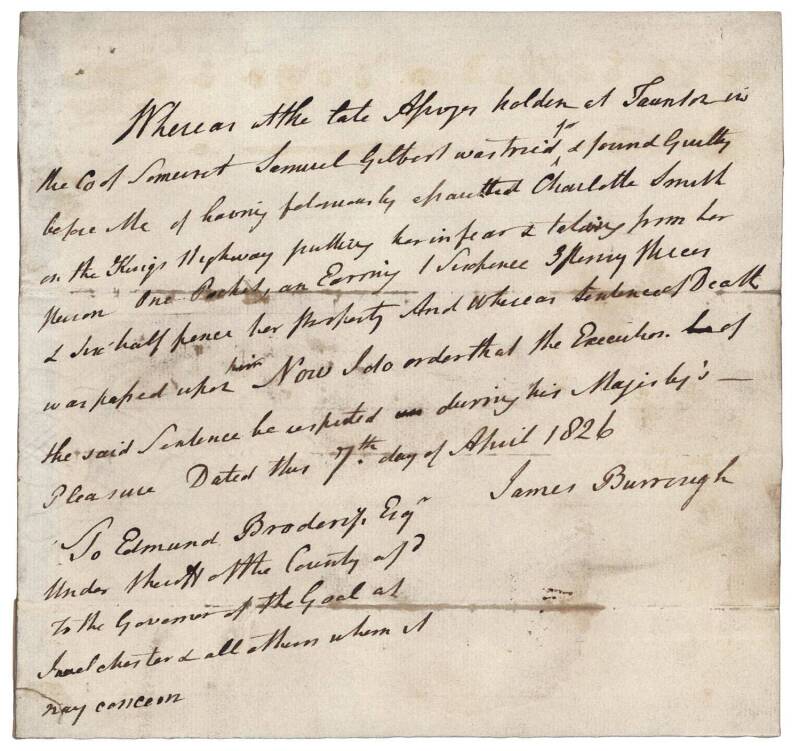 Whereas at the late Assizes holden at Taunton in
the Co of Somerset Samuel Gilbert was tried for & found Guilty
before Me of having feloniously assaulted Charlotte Smith
on the Kings Highway putting her in fear & taking from her
person One Pocket, an Earring 1 Sixpence 3 Penny pieces
& Six half pence her property And Whereas Sentence of Death
was passed upon him Now I do order that the Execution of
the said Sentence be respited during his Majesty's —
Pleasure Dated this 7th. day of April 1826
James Burrough
To Edmund Broderip. Esqr
Under Sheriff of the County afsd
to the Governor of the Goal at
Ivelchester & all others whom it
may concern